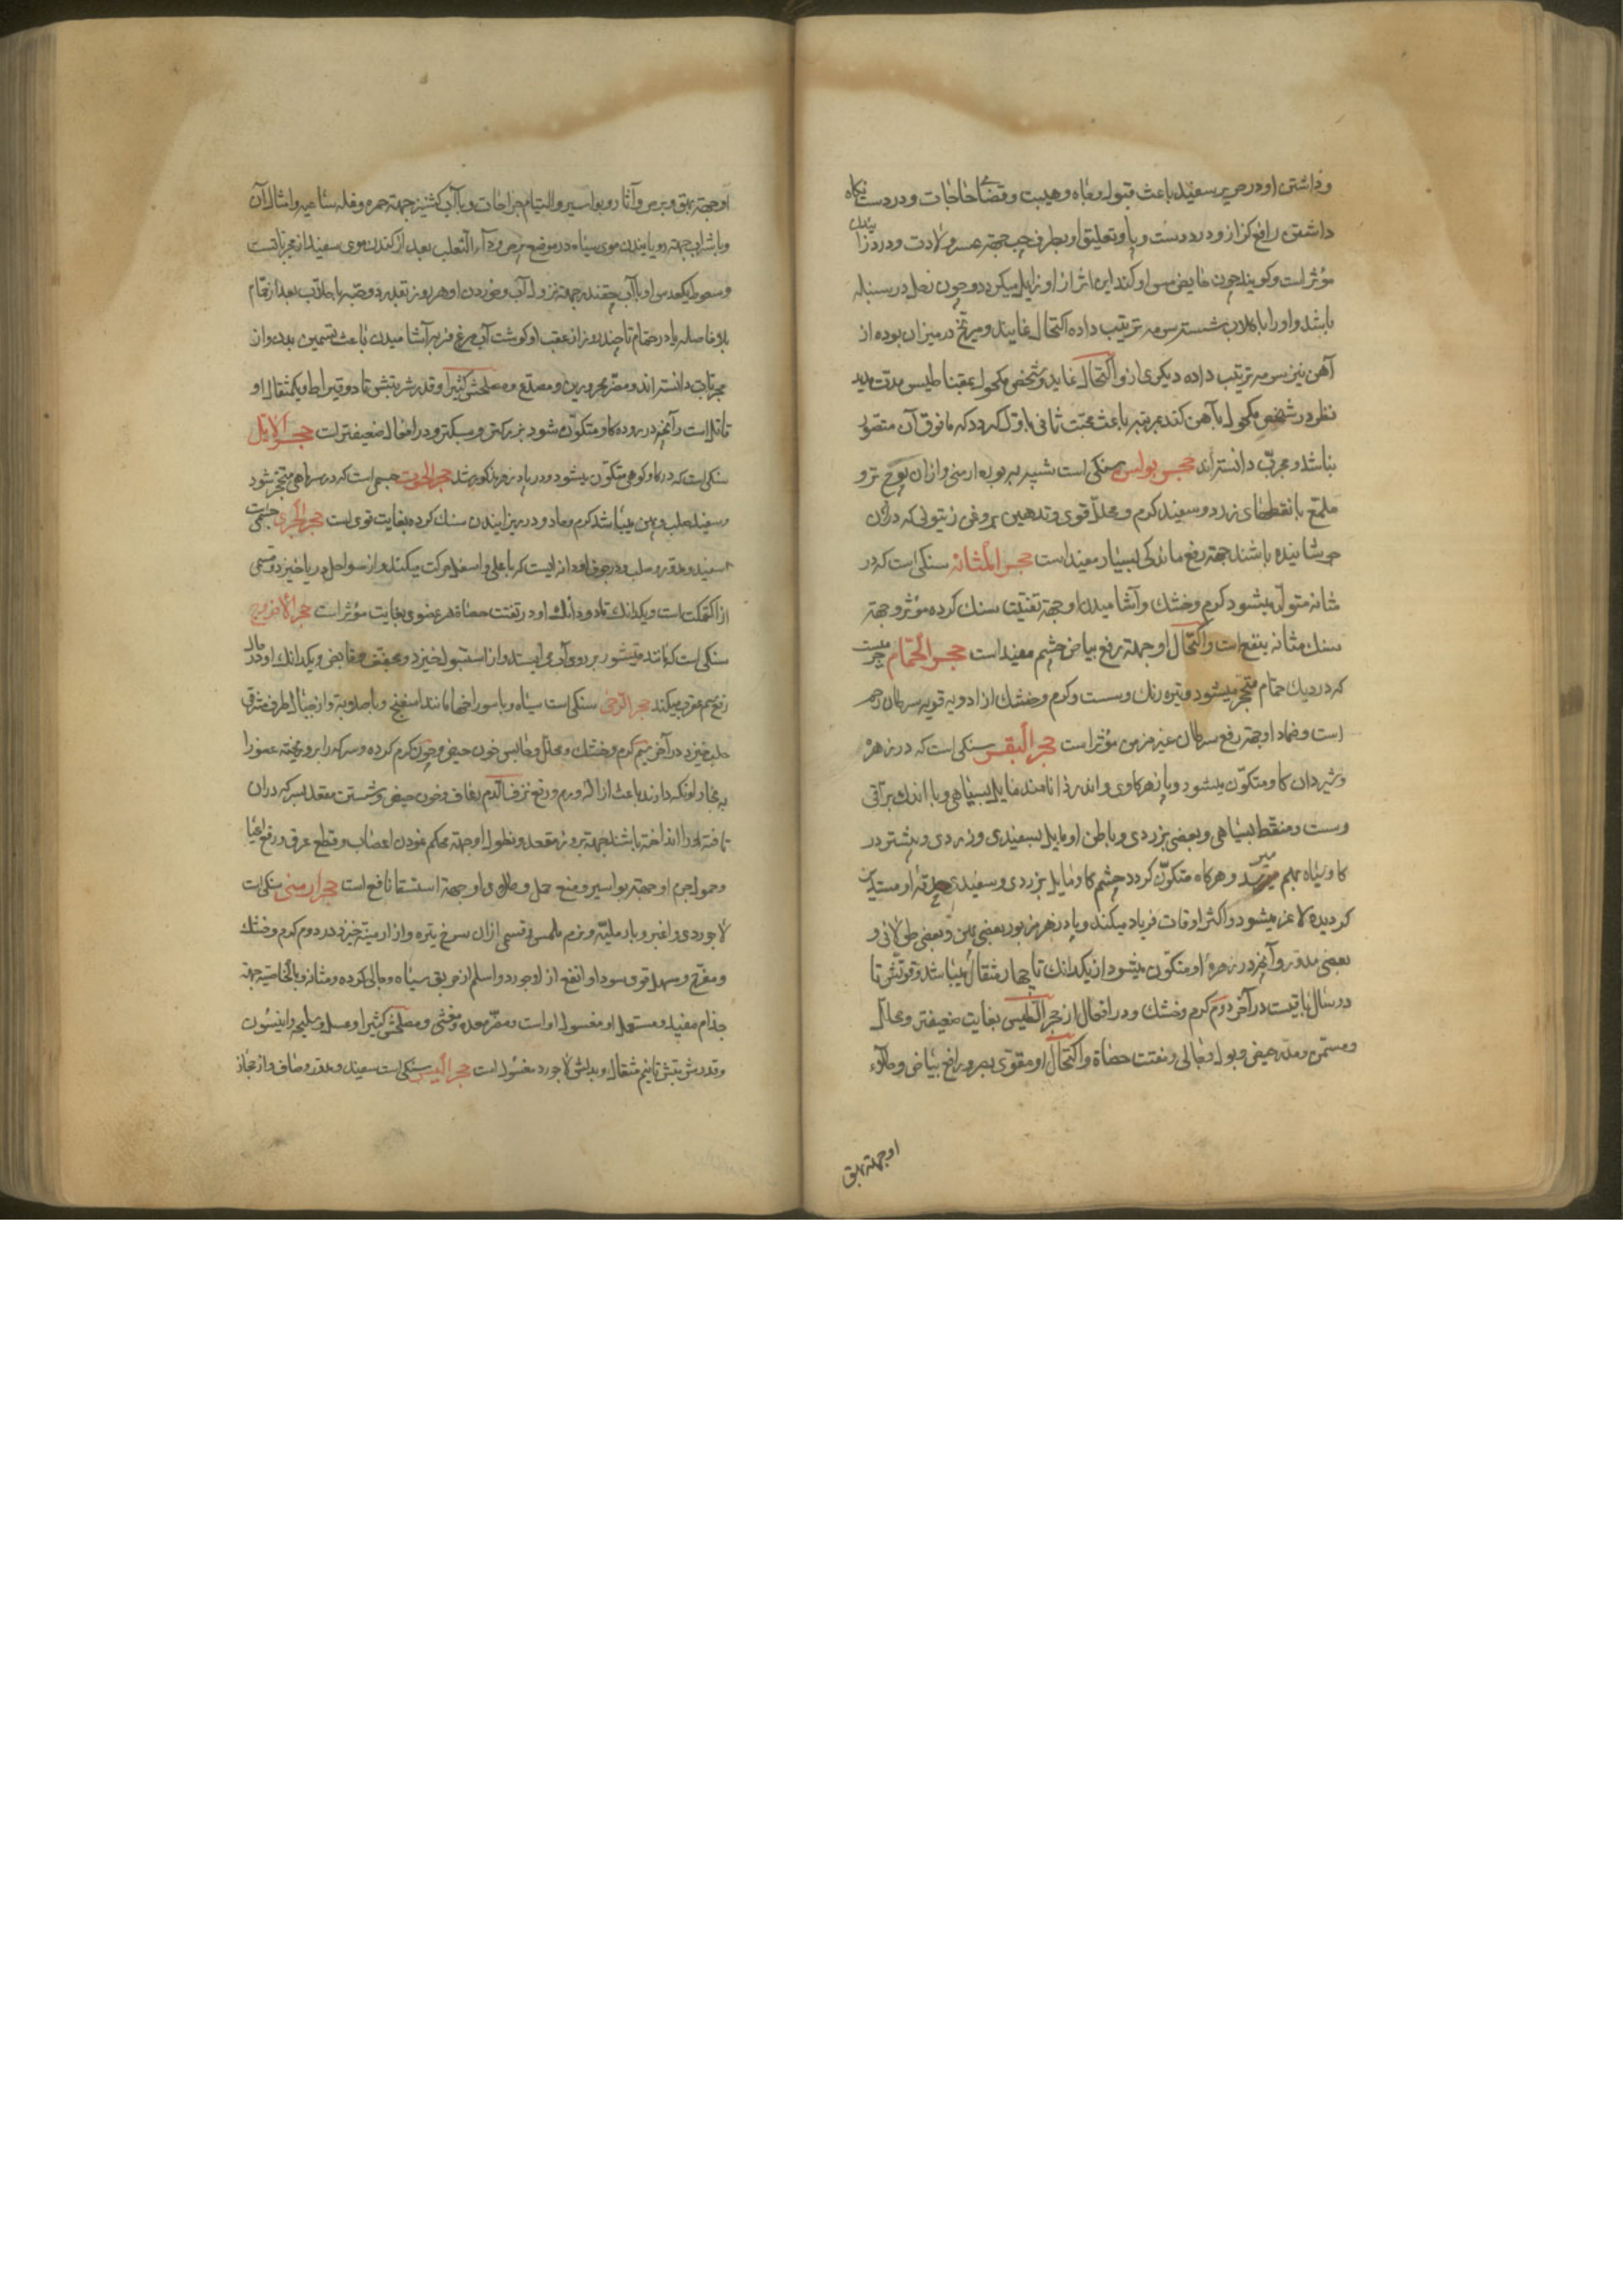 وداشتن او در حریر سفید باعث قبول و جاه و هیبت و قضای حاجات و در دست نکاه
داشتن رافع کزاز و درد دست و پا و تعلیق او بطرف چپ جهة عسر ولادت و درد زائیدن
مؤثر است و کویند چون حایض مس او کند این اثر از او زایل میکردد و چون زحل در سنبله
باشد و او را با کلاب شسته سرمه ترتیب داده اکتحال نمایند و مریخ در میزان بوده از
آهن نیز سرمه ترتیب داده دیکری از و اکتحال نماید پس شخص مکحول بمقناطیس مدت مدید
نظر در شخص مکحول بآهن کند بمرتبه باعث محبت ثانی باول کردد که مافوق آن متصور
نباشد و مجرب دانسته‌اند حجر بولس سنکی است شبیه ببوره ارمنی و از ان پوچ تر و
ملمع با نقطهای زرد و سفید کرم و محلل قوی و تدهین بروغن زیتونی که در آن
جوشانیده باشند جهة رفع ماندکی بسیار مفید است حجر المثانه سنکی است که در
مثانه متولد میشود کرم و خشک و آشامیدن او جهة تفتیت سنک کرده مؤثر و جهة
سنک مثانه بینفع است و اکتحال او جهة رفع بیاض چشم مفید است حجر الحمام جرمیست
که در دیک حمام متحجر میشود و تیره رنک و سست و کرم و خشک از ادویه قویه سرطان رحم
است و ضماد او جهة رفع سرطان غیر مزمن مؤثر است حجر البقر سنکی است که در زهره
و شیردان کاو متکون میشود و پازهر کاوی و اندرزا نامند مایل بسیاهی و با اندک براقی
و سست و منقط بسیاهی و بعضی بزردی و باطن او مایل بسفیدی و زردی و بیشتر در
کاو سیاه بهم میرسد و هرکاه متکون کردد چشم کاو مایل بزردی و سفیدی حدقه او مستدیر
کردیده لاغر میشود و اکثر اوقات فریاد میکند و پادزهر مزبور بعضی پهن و بعضی طولانی و
بعضی مدور و آنچه در زهره او متکون میشود از یکدانک تا چهار مثقال میباشد و قوتش تا
دو سال باقیست در آخر دوم کرم و خشک و در افعال از حجر التیس بغایت ضعیفتر و محلل
و مسمن و مدر حیض و بول و جالی و مفتت حصاة و اکتحال او مقوی بصر و رافع بیاض و طلاء
او جهة بهق
او جهة بهق و برص و آثار و بواسیر و التیام جراحات و با آب کشنیز جهة حمره و نمله ساعیه و امثال آن
و با شراب جهة رویانیدن موی سیاه در موضع برص و داء الثعلب بعد از کندن موی سفید از مجرباتست
و سعوط یکعدس او با آب چقندر جهة نزول آب و خوردن او هر روز بقدر دو حبه با جلاب بعد از حمام
بلافاصله یا در حمام تا چند روز از عقب او کوشت آب مرغ فربه آشامیدن باعث تسمین بدن و از
مجربات دانسته‌اند و مضر محرورین و مصدع و مصلحش کثیرا و قدر شربتش تا دو قیراط و یکمثقال او
قاتل است و آنچه در روده کاو متکون شود بزرکتر و سبکتر و در افعال ضعیفتر است حجر الایل
سنکی است که در کاو کوهی متکون میشود و در پادزهر مذکور شد حجر الحوت جسمی است که در سر ماهی متحجر شود
و سفید صلب و پهن میباشد کرم و حاد و در ریزانیدن سنک کرده بغایت قوی است حجر البحری جسمی است
سفید و مدور و صلب و در جوف او دانه ایست که باعلی و اسفل حرکت میکند و از سواحل دریا خیزد و قسمی
از اکتمکت است و یکدانک تا دو دانک او در تفتت حصاة هر عضوی بغایت مؤثر است حجر الافروج
سنکی است که مانند قیشور بر روی آب می ایستد و از استنبول خیزد و مجفف و قابض و یکدانک او در حال
رفع سم عقرب میکند حجر الرخی سنکی است سیاه و با سوراخها مانند اسفنج و با صلوبة و از جبال اطراف شرقی
حلب خیزد در آخر سیم کرم و خشک و محلل و حابس خون حیض و چون کرم کرده و سرکه را بر و ریخته عضو را
به بخار او نکه دارند باعث ازاله ورم و رفع نزف الدم رعاف و خون حیض و نشستن مقعد بسرکه در ان
تافته او را انداخته باشند جهة بروز مقعد و نطول او جهة محکم نمودن اعصاب و قطع عرق و رفع اعیا
و حمول جرم او جهة بواسیر و منع حمل و طلای او جهة استسقا نافع است حجر ارمنی سنکی است
لاجوردی و اغبر و با رملیة و نرم ملمس و قسمی از ان سرخ تیره و از ارمنیة خیزد در دوم کرم و خشک
و مفرح و مسهل قوی سودا و انفع از لاجورد و اسلم از خربق سیاه و جالی کرده و مثانه و بالخاصیة جهة
جذام مفید و مستعمل او مغسول او است و مضر معده و مغشی و مصلحش کثیرا و عسل و هلیله و انیسون
و قدر شربتش تا نیم مثقال و بدلش لاجورد مغسول است حجر السبر سنکی است سفید و مدور و صاف و از حجاز